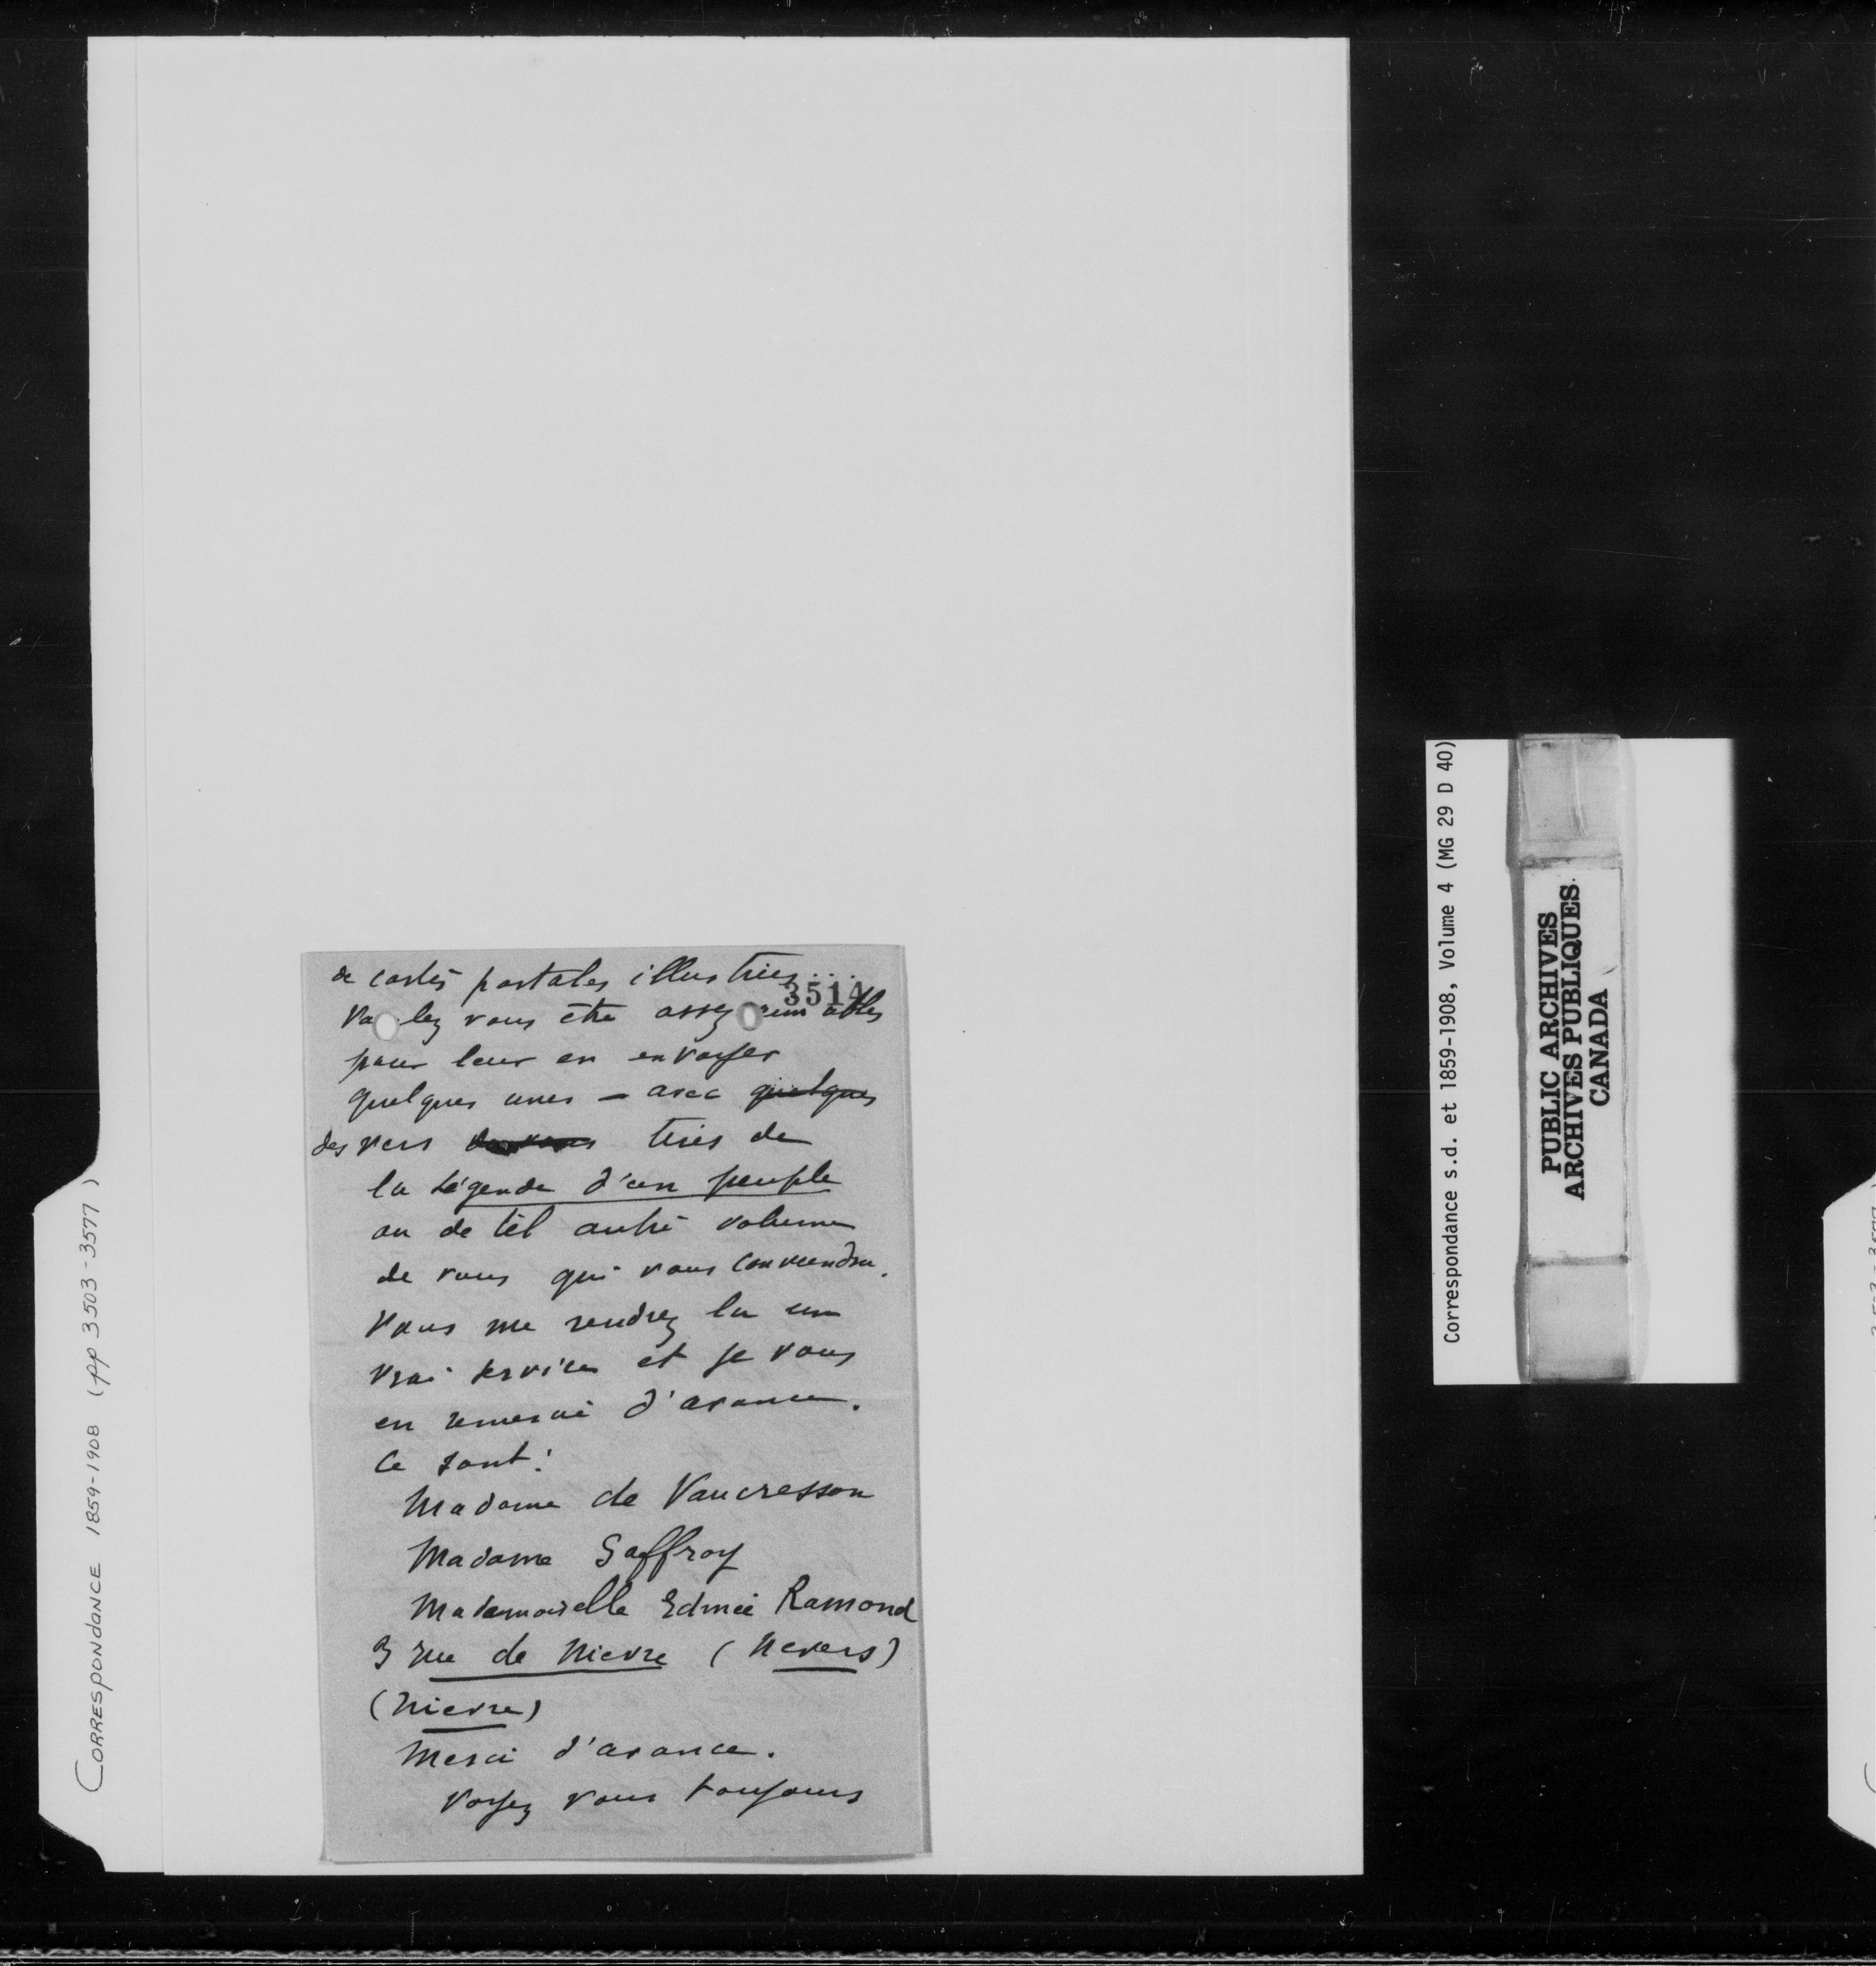 de cartes postales illustrées...
3514
Voulez vous être assez aimables
pour leur en envoyer
quelques unes – avec quelques
des vers tirés de
la Légende d'un peuple
ou de tel autre volume
de vous qui vous conviendra.
Vous me rendrez là un
vrai service et je vous
en remercie d'avance.
Ce sont :
Madame de Vaucresson
Madame Saffroy
Mademoiselle Edmée Ramond
3 rue de Nievre (Nevers)
(Nievre)
Merci d'avance.
Voyez vous toujours
CORRESPONDANCE 1859-1908 (pp 3503-3577)
Correspondance s.d. et 1859-1908, Volume 4 (MG 29 D 40)
PUBLIC ARCHIVES
ARCHIVES PUBLIQUES
CANADA